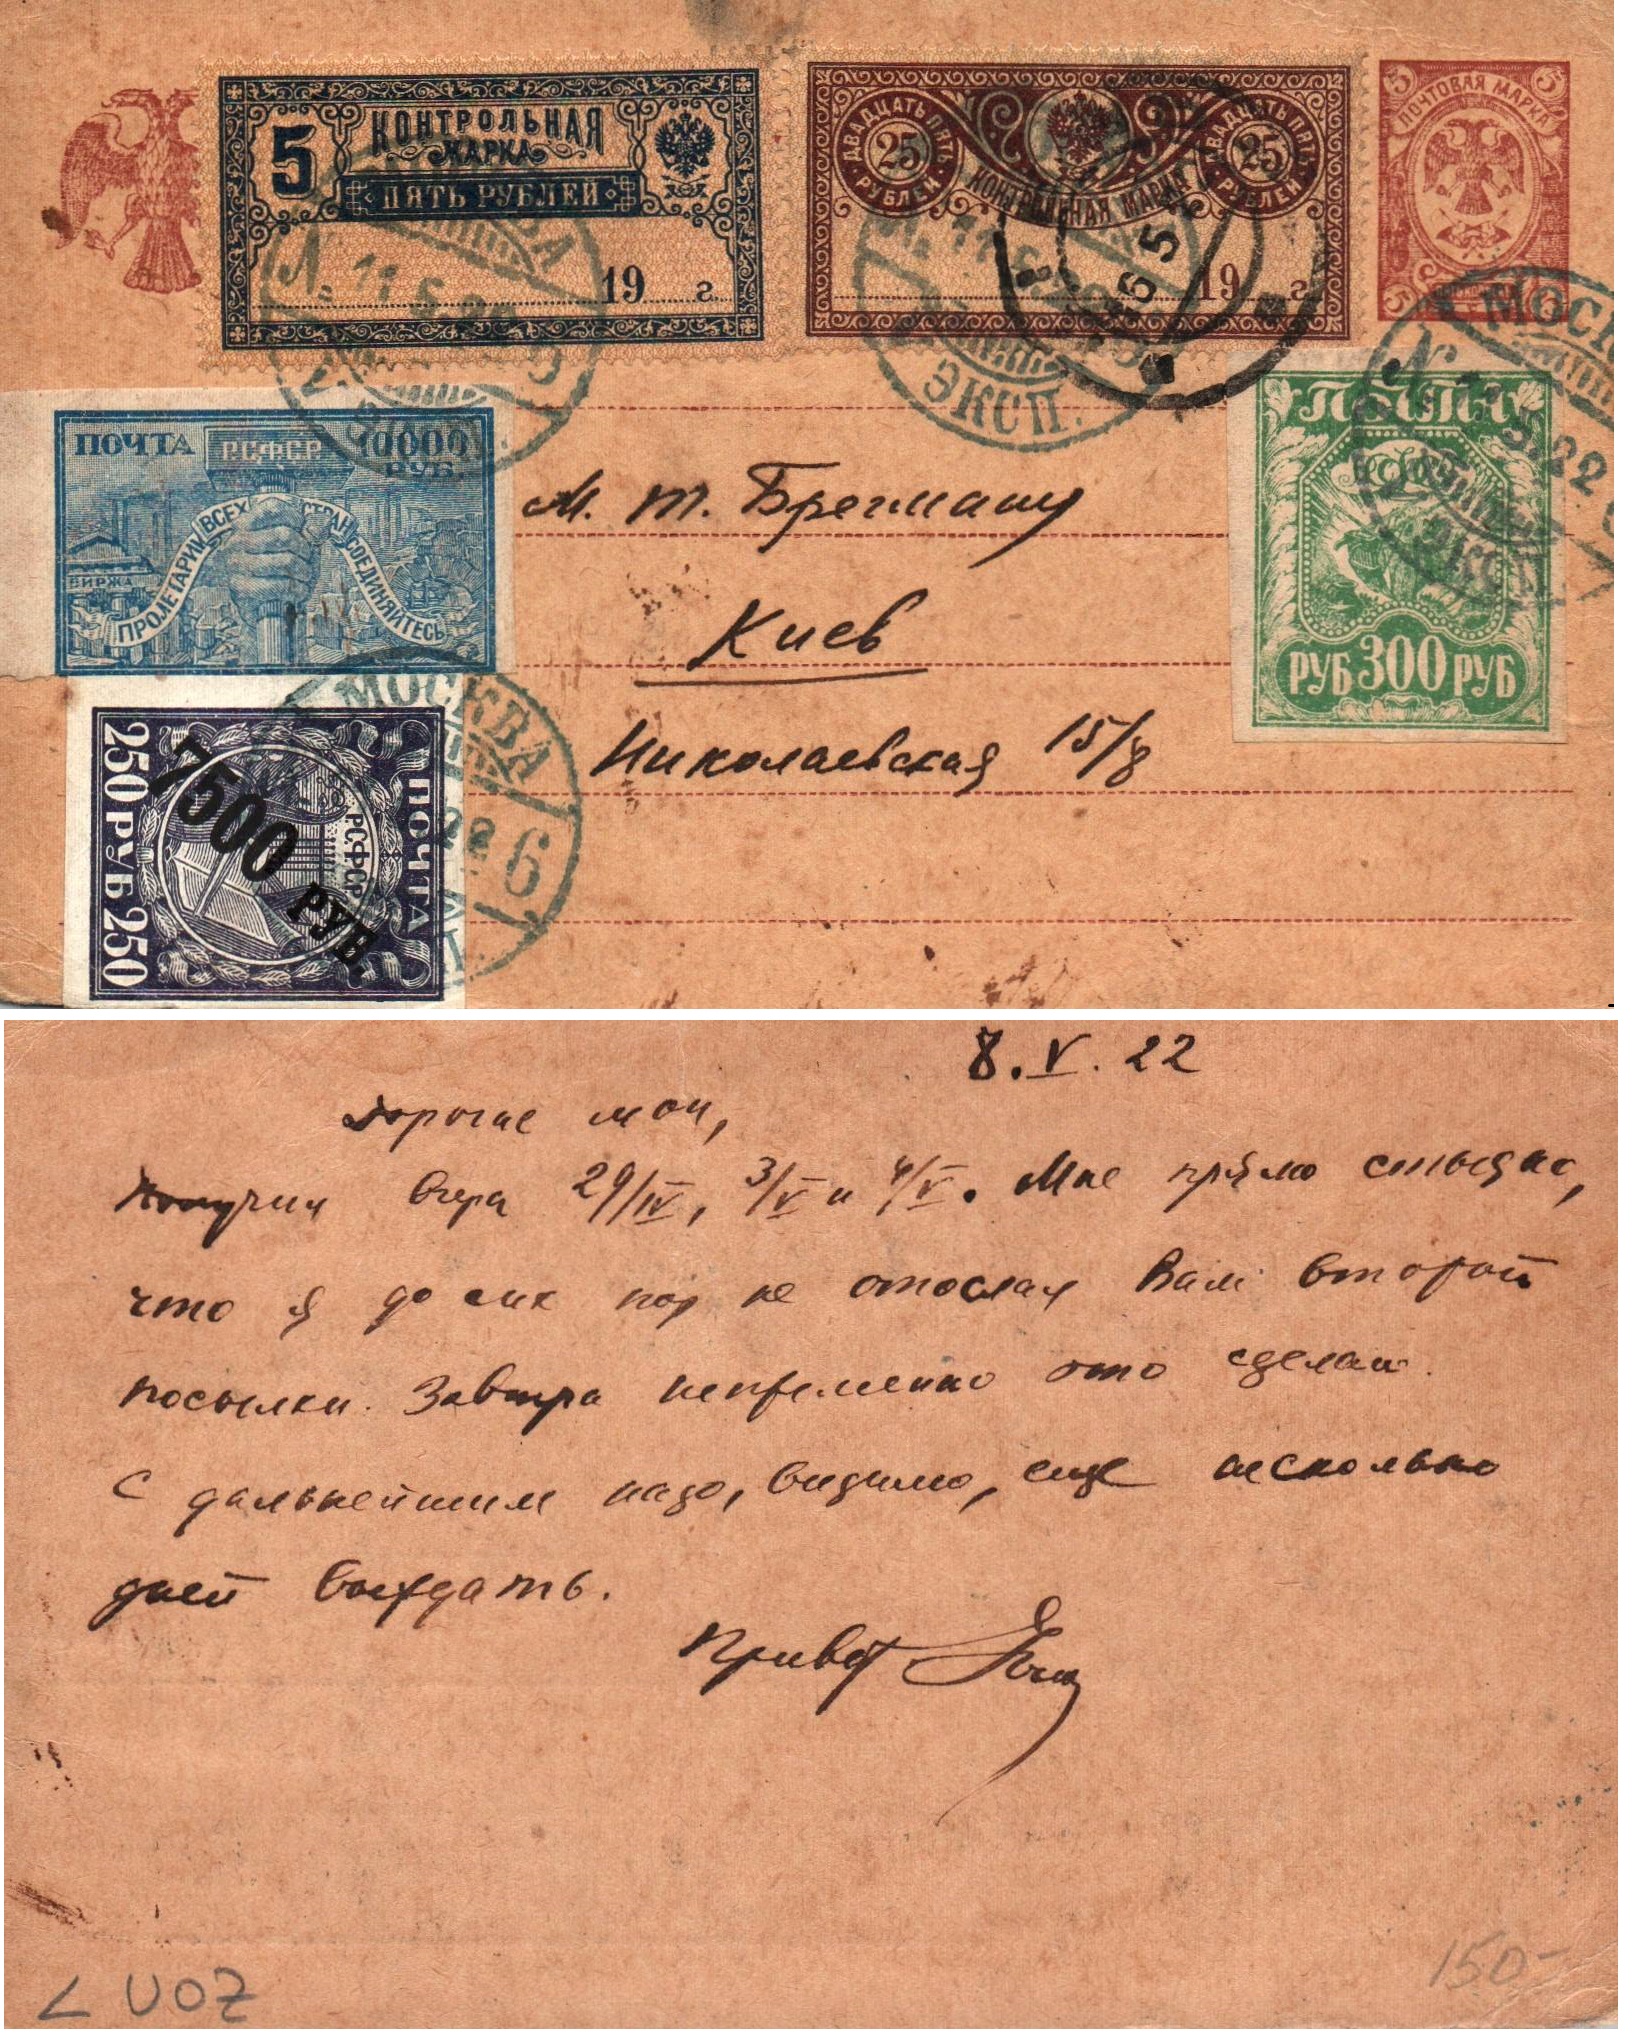 5 КОНТРОЛЬНАЯ
МАРКА
ПЯТЬ РУБЛЕЙ
19 г.
ДВАДЦАТЬ ПЯТЬ РУБЛЕЙ
25
КОНТРОЛЬНАЯ МАРКА
ДВАДЦАТЬ ПЯТЬ РУБЛЕЙ
25
19 г.
5 5
ПОЧТОВАЯ МАРКА
5
МОСКВА
11.5.22
ЭКСП.
ПОЧТА Р.С.Ф.С.Р. 10000
РУБ.
БИРЖА
ПРОЛЕТАРИИ ВСЕХ СТРАН СОЕДИНЯЙТЕСЬ
М. Т. Брегману
Киев
Николаевская 15/8
РУБ 300 РУБ
250 РУБ 250
ПОЧТА
Р.С.Ф.С.Р.
7500 РУБ.
МОСКВА
22 6
8.V.22
Дорогие мои,
Получил вчера 29/IV, 3/V и 4/V. Мне прямо стыдно,
что я до сих пор не отослал Вам второй
посылки. Завтра непременно это сделаю.
С дальнейшим надо, видимо, еще несколько
дней выждать.
Привет
L UOZ
150-